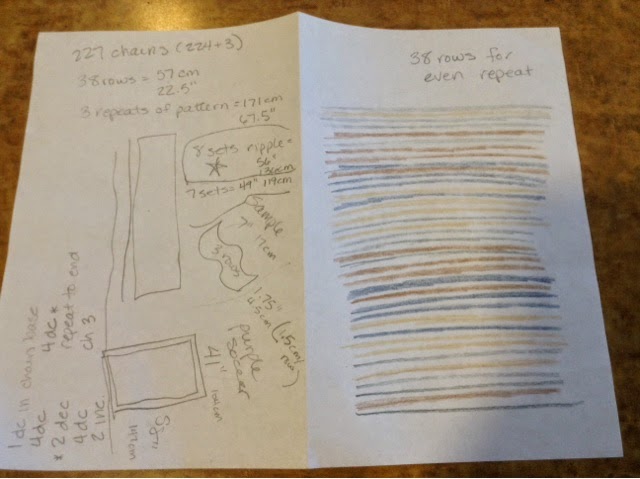 227 chains (224+3)
38 rows = 57cm
22.5"
3 repeats of pattern = 171cm
67.5"
8 sets ripple =
56"
136cm
7 sets = 49" 119cm
Sample
7" 17cm
3 rows
1.75"
4.5cm (1.5cm/
row)
purple
soccer
41"
104cm
56"
142cm
1 dc in chain base
4dc
* 2 dec 4dc *
4dc repeat to end
2 inc ch 3
38 rows for
even repeat